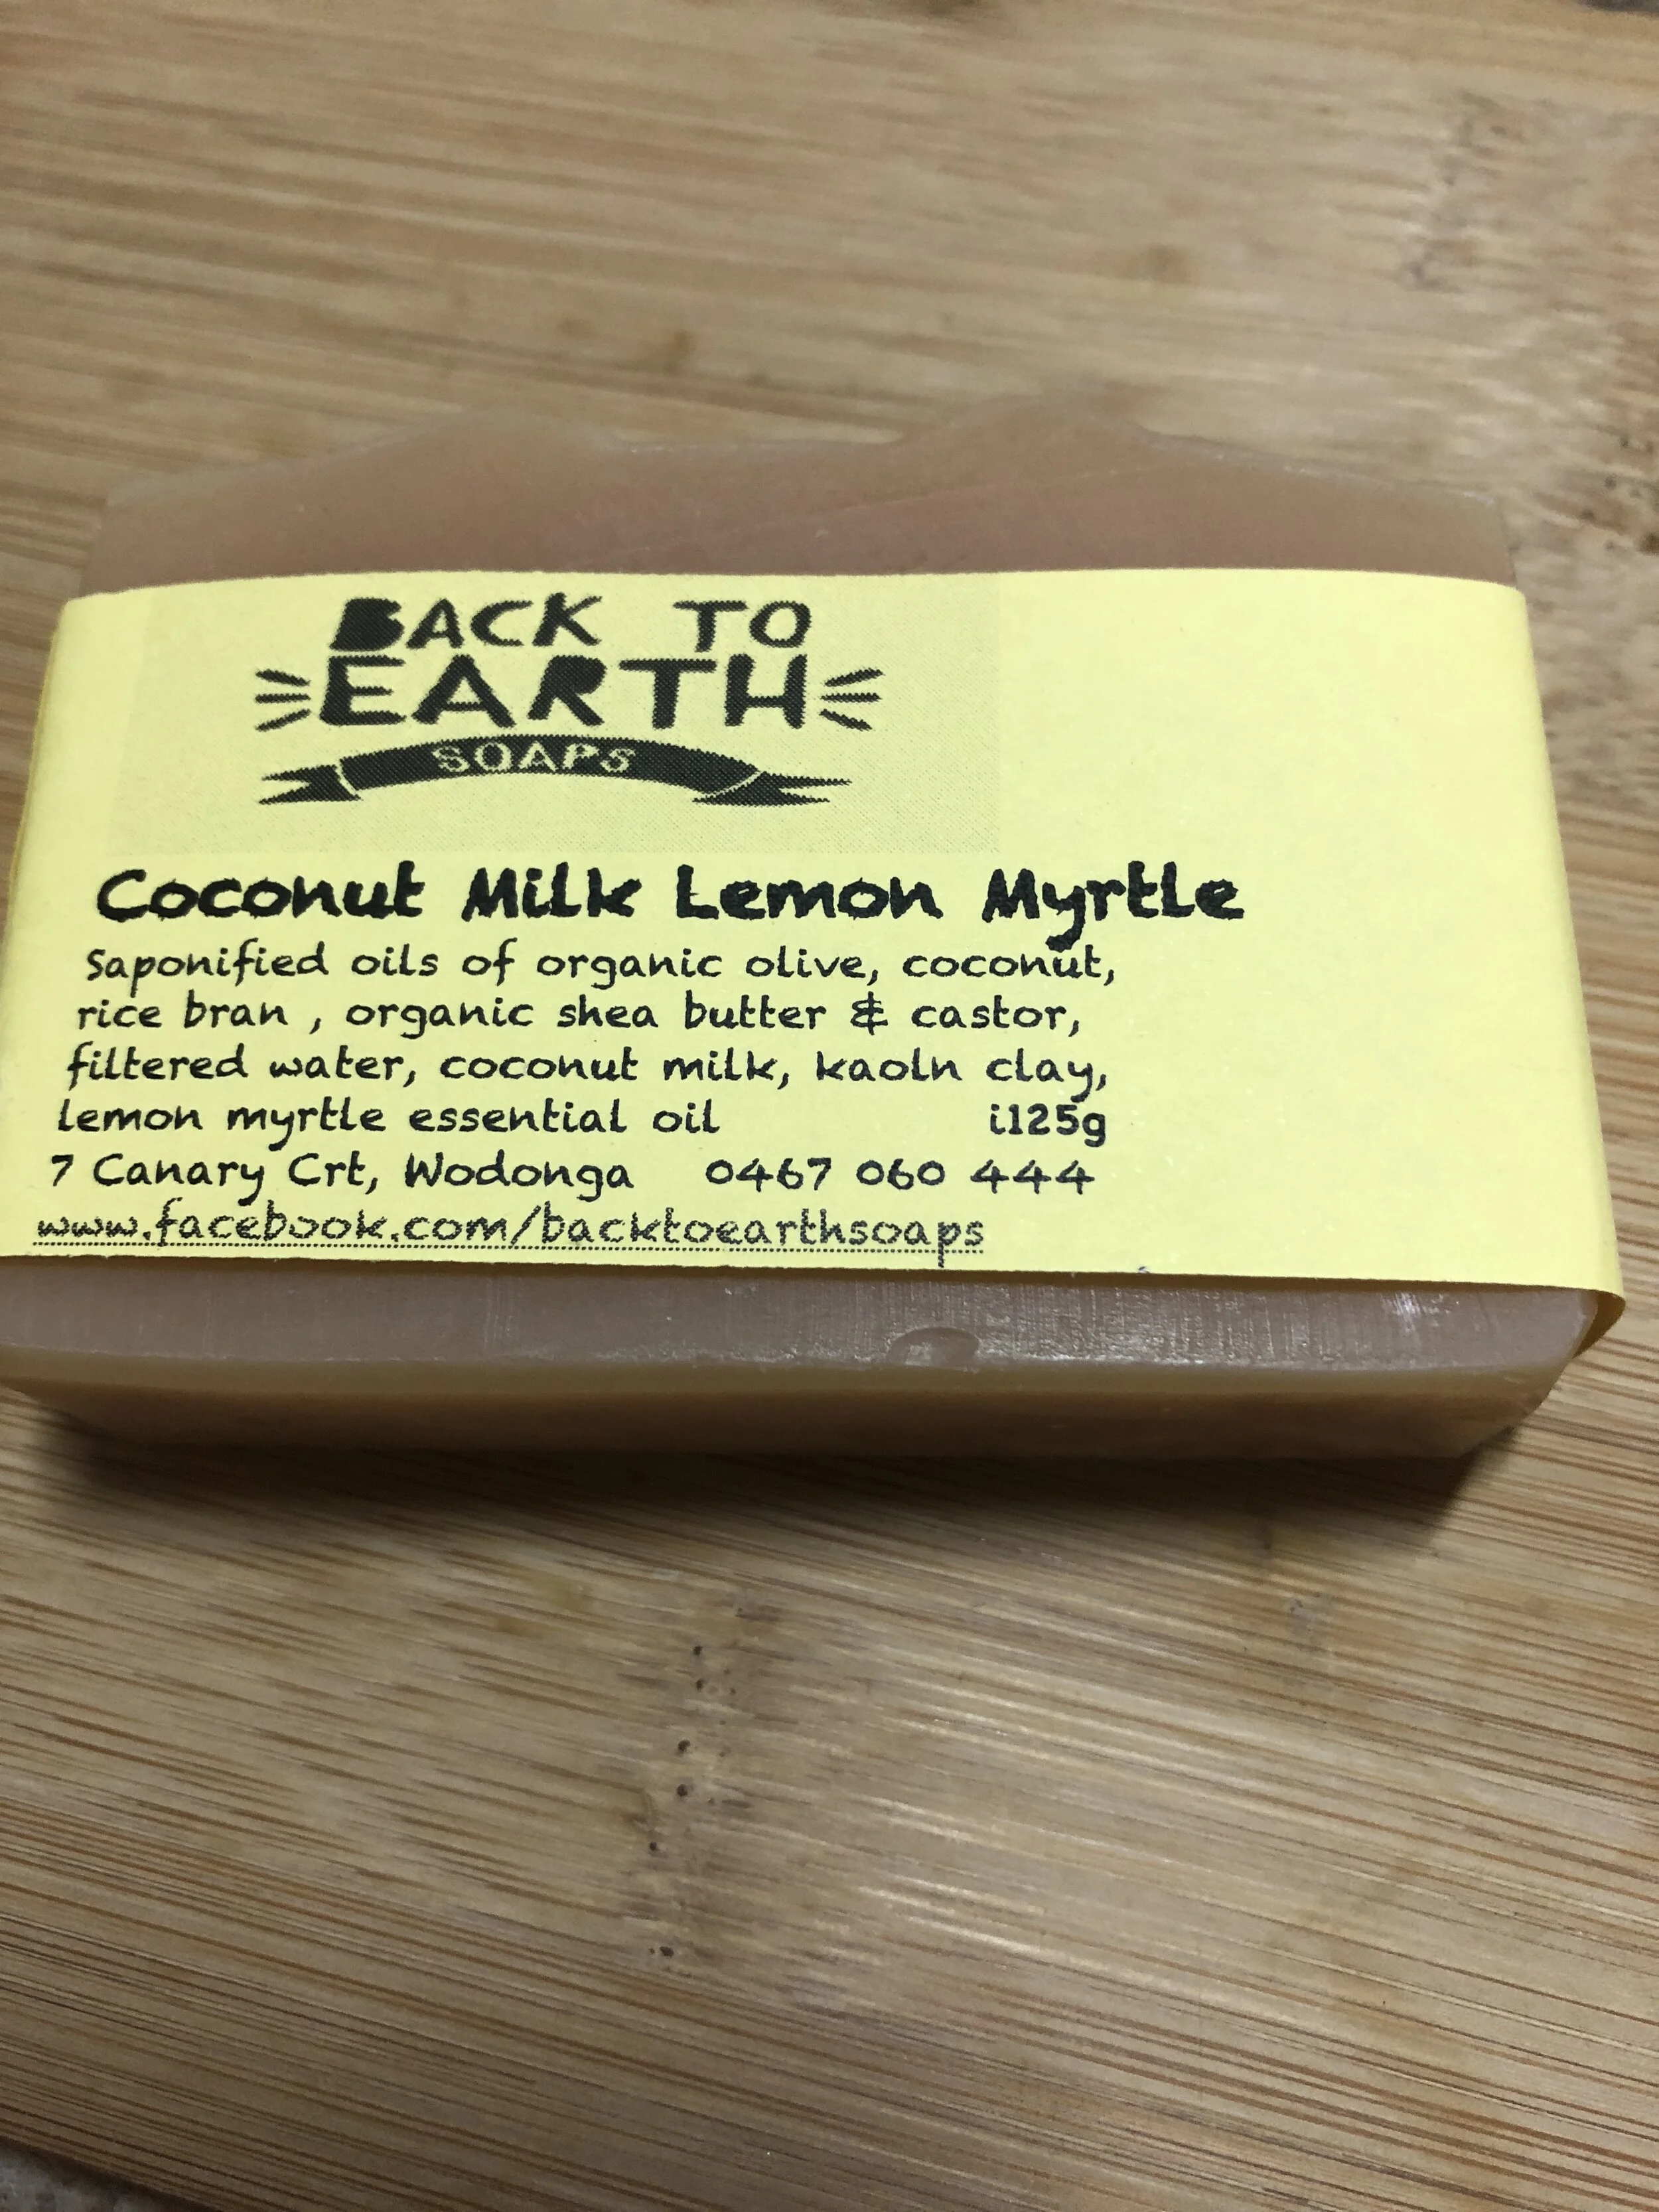 BACK TO
EARTH
SOAPS
Coconut Milk Lemon Myrtle
Saponified oils of organic olive, coconut,
rice bran , organic shea butter & castor,
filtered water, coconut milk, kaoln clay,
lemon myrtle essential oil i125g
7 Canary Crt, Wodonga 0467 060 444
www.facebook.com/backtoearthsoaps